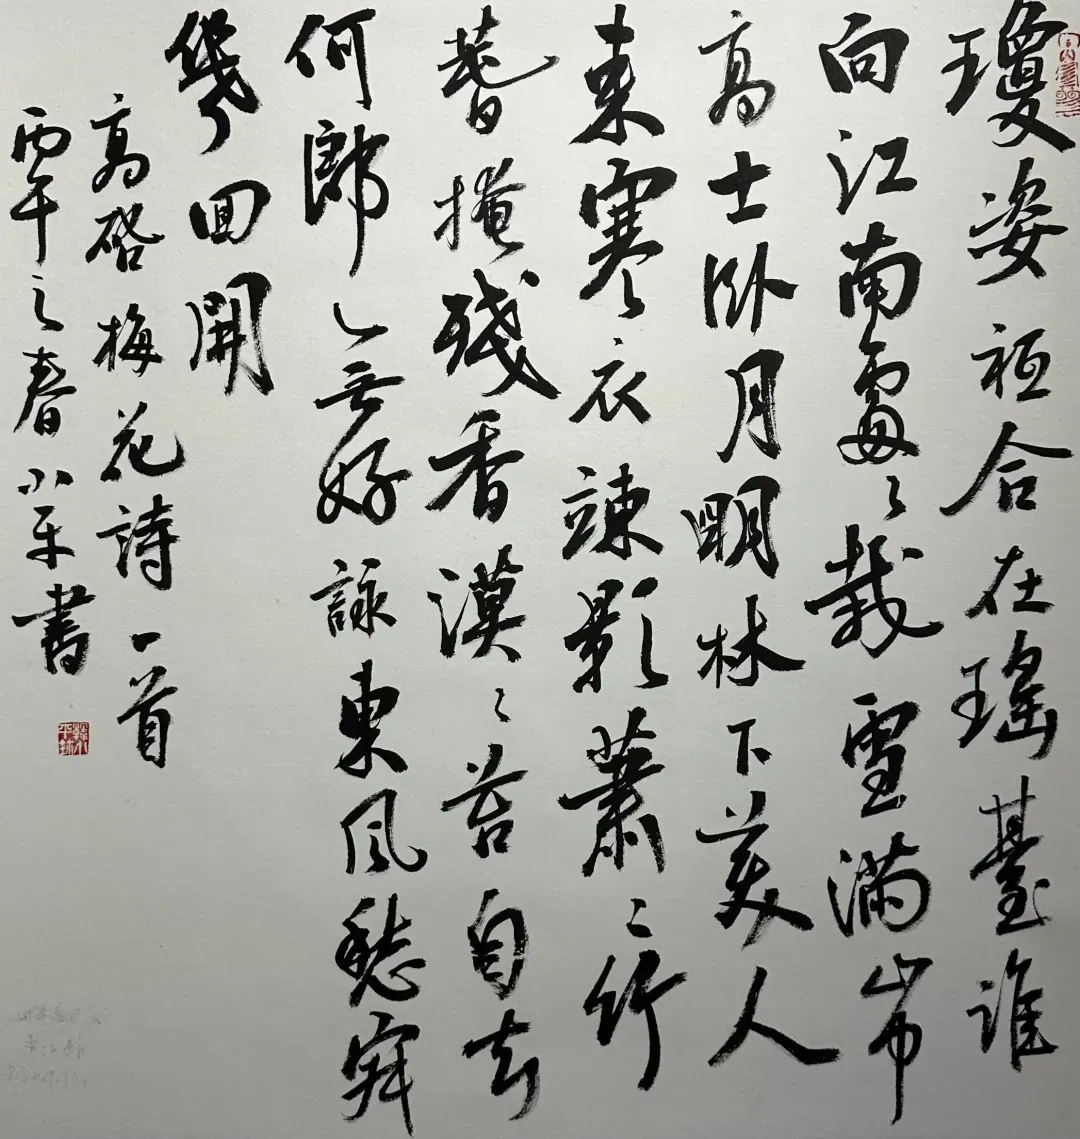 瓊姿祗合在瑤臺誰
向江南處〻栽雪滿山中
高士卧月明林下美人
来寒衣疎影蕭〻竹
春掩殘香漠〻苔自去
何郎無好詠東風愁寂
幾回開
高啓梅花詩一首
丙午之春小平書